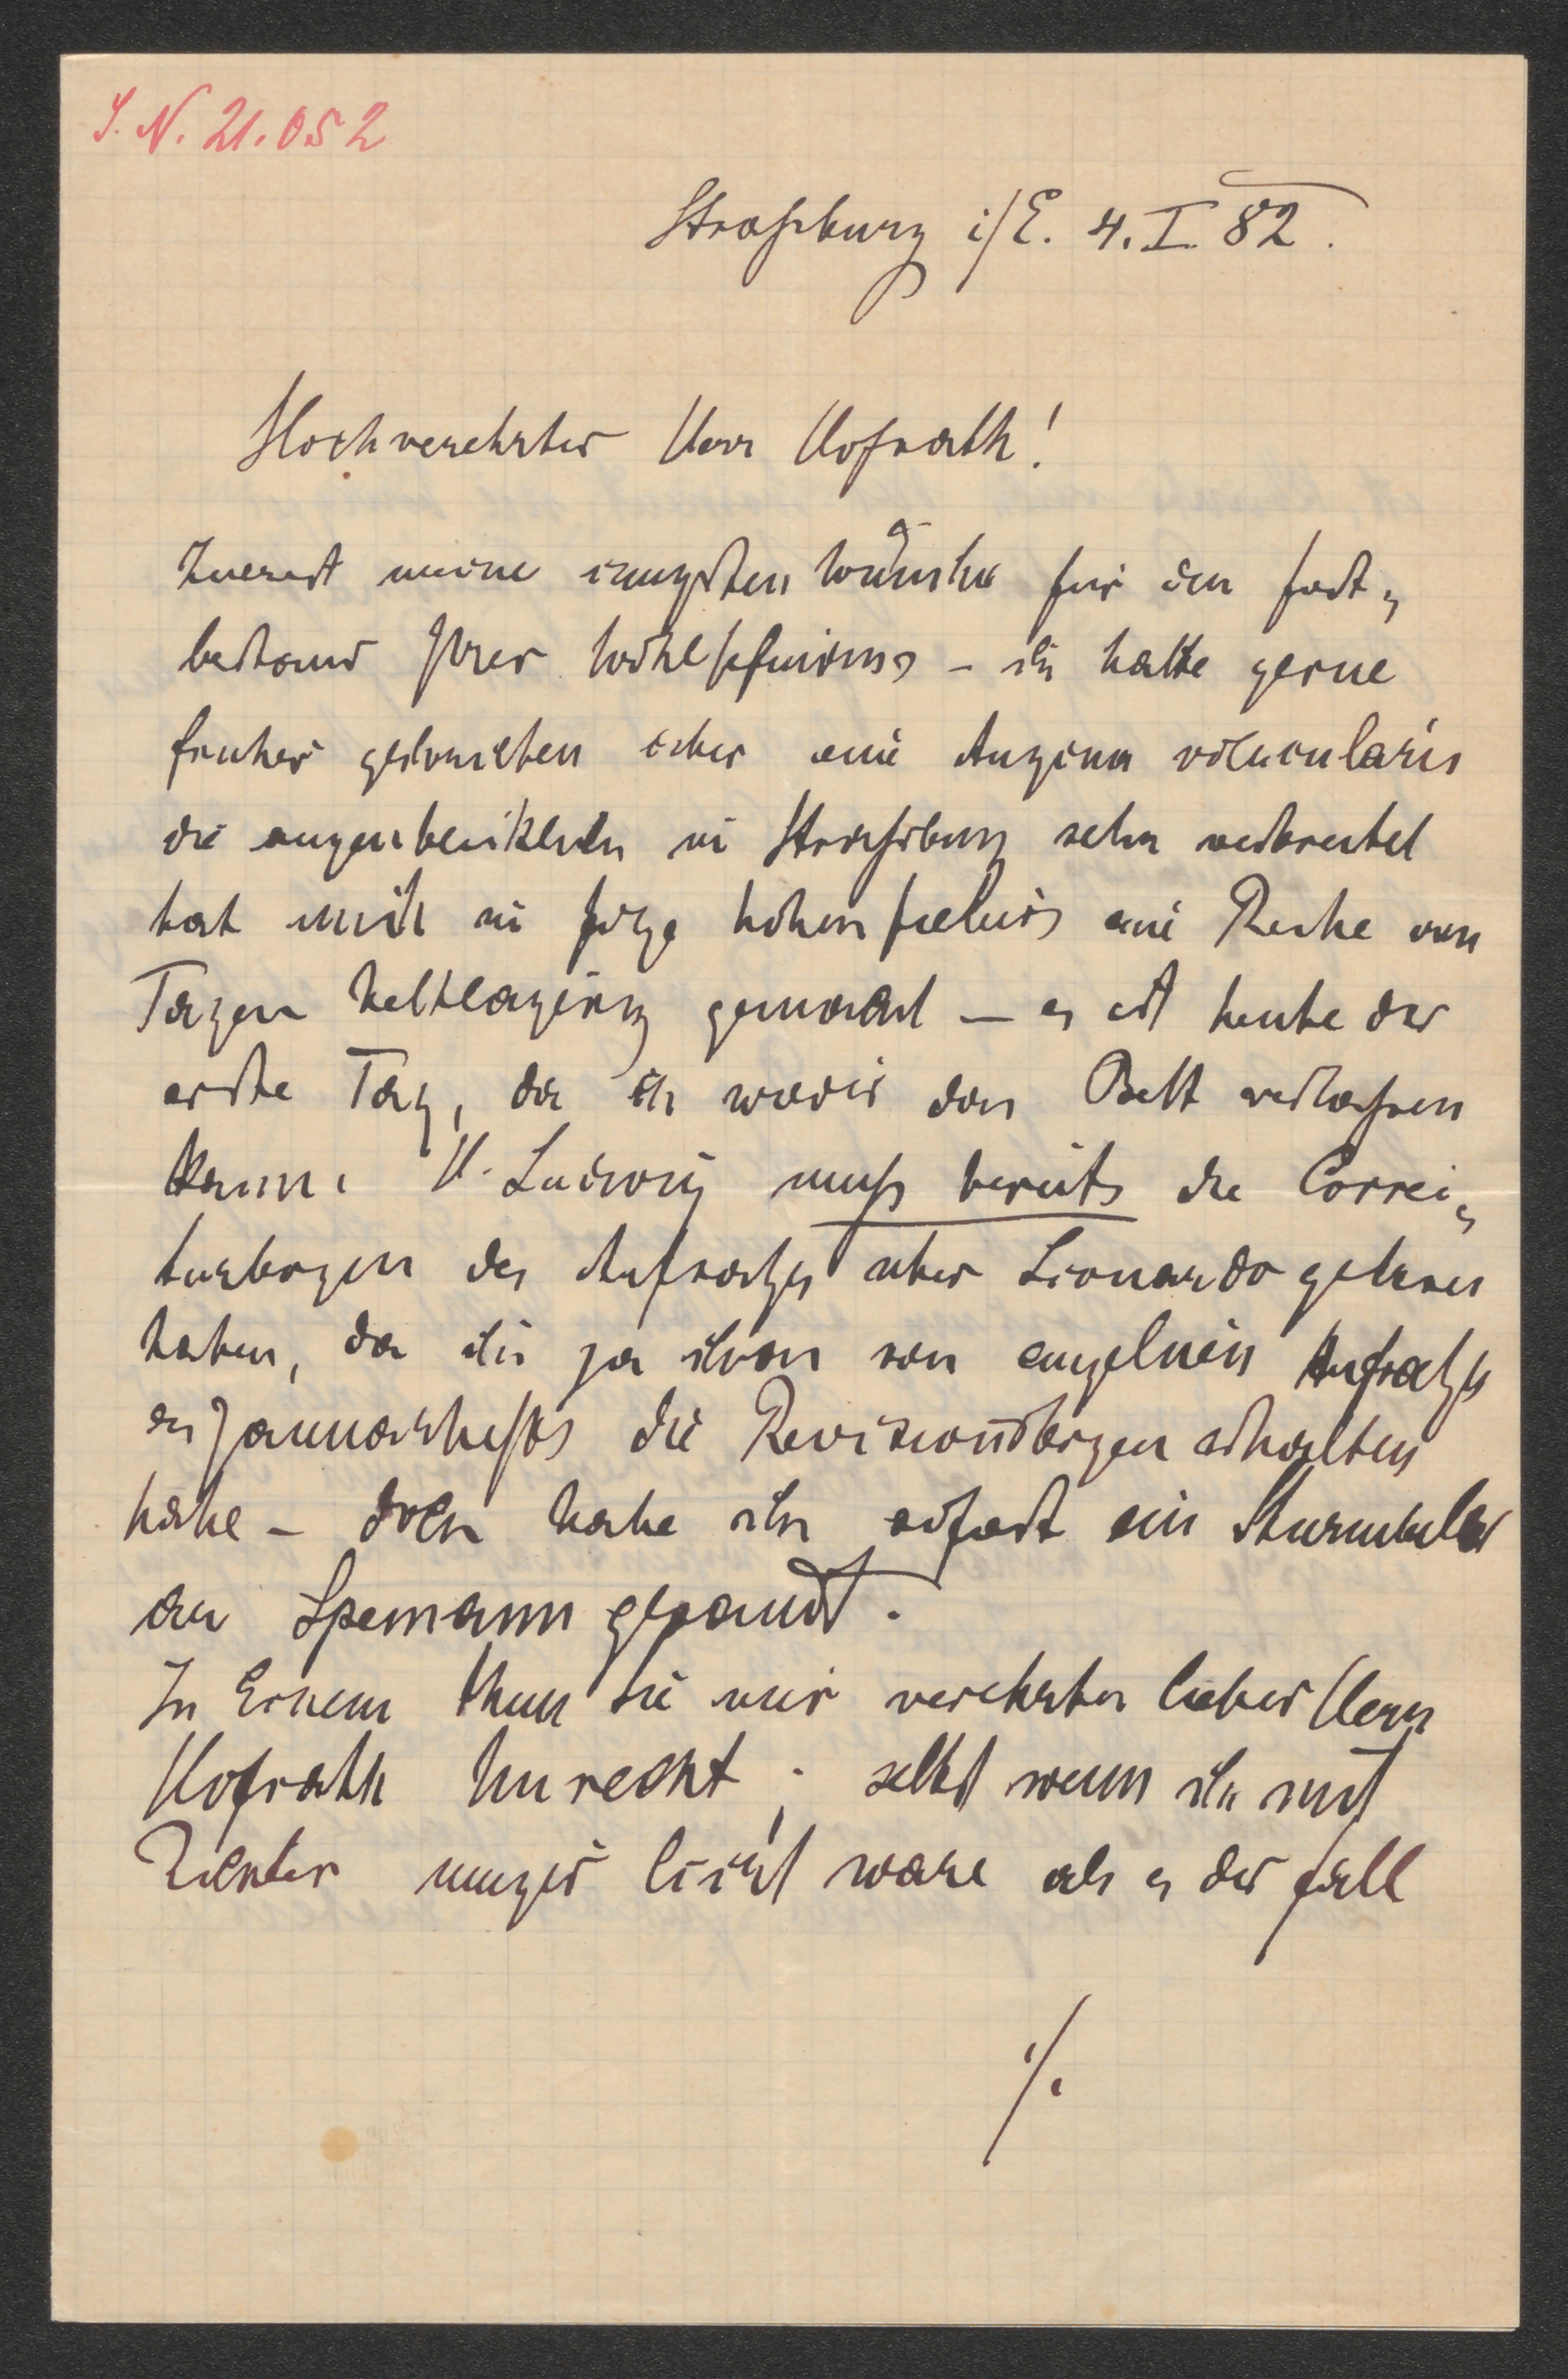 I. N. 21.052
Straßburg i/E. 4. I 82.
Hochverehrter Herr Hofrath!
Zuerst meine innigsten Wünsche für den Fort-
bestand Ihres Wohlbefindens – ich hätte gerne
früher geschrieben aber eine Angina
die augenblicklich in Straßburg sehr verbreitet
hat mich in Folge hohen Fiebers eine Reihe von
Tagen bettlägerig gemacht – es ist heute der
erste Tag, da ich wieder das Bett verlassen
kann. H. Ludwig muß bereits die Correc-
turbogen des Aufsatzes über Leonardo gelesen
haben, da ich ja schon von einzelnen Aufsätzen
des Januarheftes die Revisionsbogen erhalten
habe – doch habe ich sofort ein
an Spemann gesandt.
In Einem thun Sie mir verehrter lieber Herr
Hofrath Unrecht; selbst wenn ich mit
Richter näher liirt wäre als es der Fall
./.